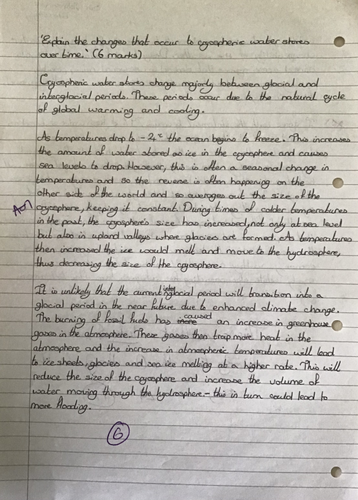 'Explain the changes that occur to cryospheric water stores
over time.' (6 marks)
Cryospheric water stores change majorly between glacial and
interglacial periods. These periods occur due to the natural cycle
of global warming and cooling.
As temperatures drop to -2°C the ocean begins to freeze. This increases
the amount of water stored as ice in the cryosphere and causes
sea levels to drop. However, this is often a seasonal change in
temperatures and so the reverse is often happening on the
other side of the world and so averages out the size of the
AO1 cryosphere, keeping it constant. During times of colder temperatures
in the past, the cryosphere's size has increased, not only at sea level
but also in upland valleys where glaciers are formed. As temperatures
then increased the ice would melt and move to the hydrosphere,
thus decreasing the size of the cryosphere.
It is unlikely that the current interglacial period will transition into a
glacial period in the near future due to enhanced climate change.
The burning of fossil fuels has caused an increase in greenhouse
gases in the atmosphere. These gases then trap more heat in the
atmosphere and the increase in atmospheric temperatures will lead
to ice sheets, glaciers and sea ice melting at a higher rate. This will
reduce the size of the cryosphere and increase the volume of
water moving through the hydrosphere - this in turn could lead to
more flooding.
6